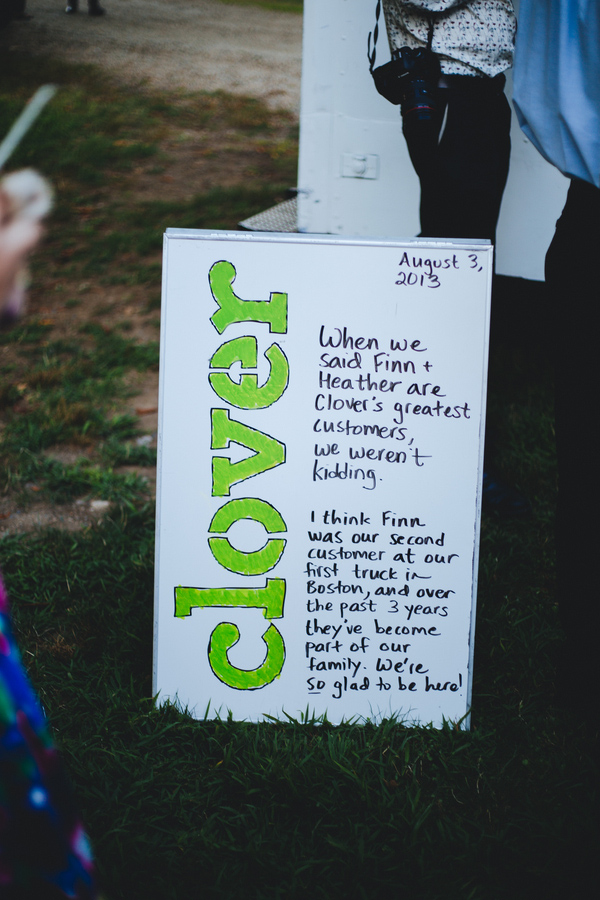 clover
August 3,
2013
When we
said Finn +
Heather are
Clover's greatest
customers,
we weren't
kidding.
I think Finn
was our second
customer at our
first truck in
Boston, and over
the past 3 years
they've become
part of our
family. We're
so glad to be here!